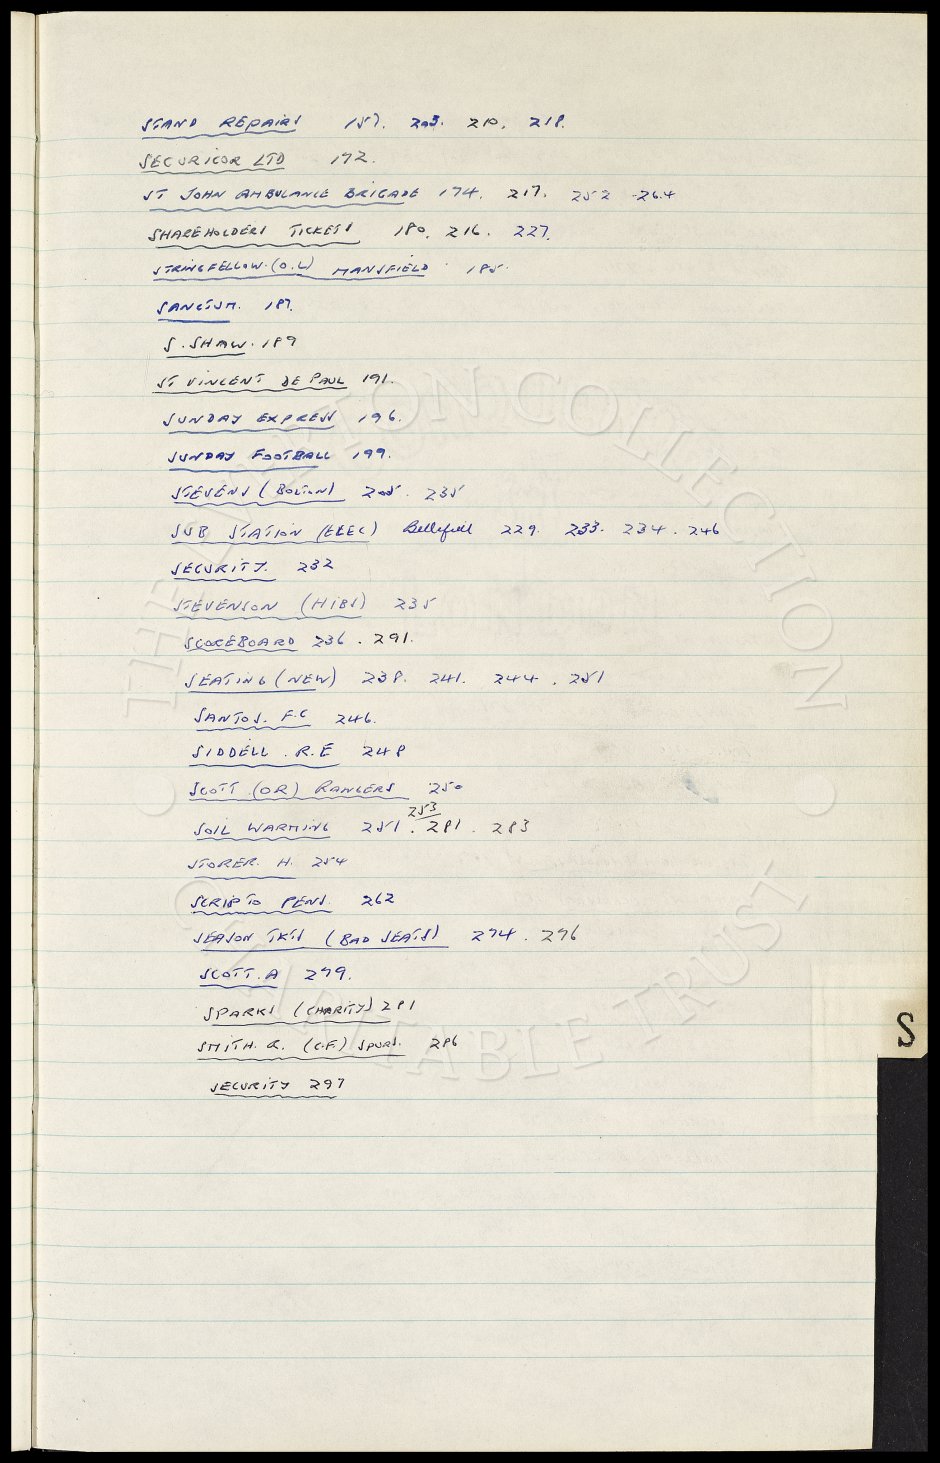 STAND REPAIRS 157. 203. 210. 218.
SECURICOR LTD 172.
ST JOHN AMBULANCE BRIGADE 174. 217. 252 264
SHAREHOLDERS TICKETS 180. 216. 227.
STRINGFELLOW. (O.L) MANSFIELD 185.
SANCTUM. 187.
S. SHAW. 189
ST VINCENT DE PAUL 191.
SUNDAY EXPRESS 196.
SUNDAY FOOTBALL 199.
STEVENS (BOLTON) 205. 235
SUB STATION (ELEC) Bellefield 229. 233. 234. 246
SECURITY. 232
STEVENSON (HIBS) 235
SCOREBOARD 236. 291.
SEATING (NEW) 238. 241. 244. 251
SANTOS. F.C 246.
SIDDELL. R.E 248
SCOTT (OR) RANGERS 250
253
SOIL WARMING 251. 281. 283
STORER. H. 254
SCRIPTO PENS. 262
SEASON TKTS (BAD SEATS) 274. 276
SCOTT. A 279.
SPARKS (CHARITY) 281
SMITH. G. (C.F.) SPURS. 286
SECURITY 297
S
THE EVERTON COLLECTION
CHARITABLE TRUST